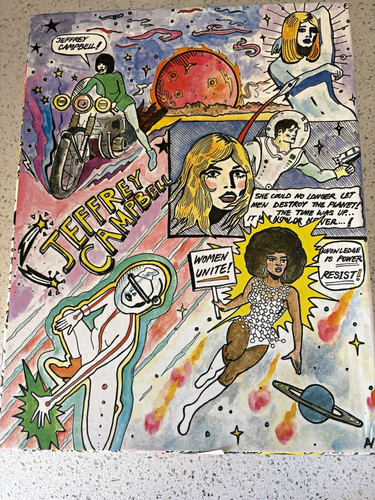 JEFFREY
CAMPBELL!
JEFFREY
CAMPBELL
SHE COULD NO LONGER LET
MEN DESTROY THE PLANET!
THE TIME WAS UP...
IT
NOW OR NEVER...!
WOMEN
UNITE!
KNOWLEDGE
IS POWER
RESIST!